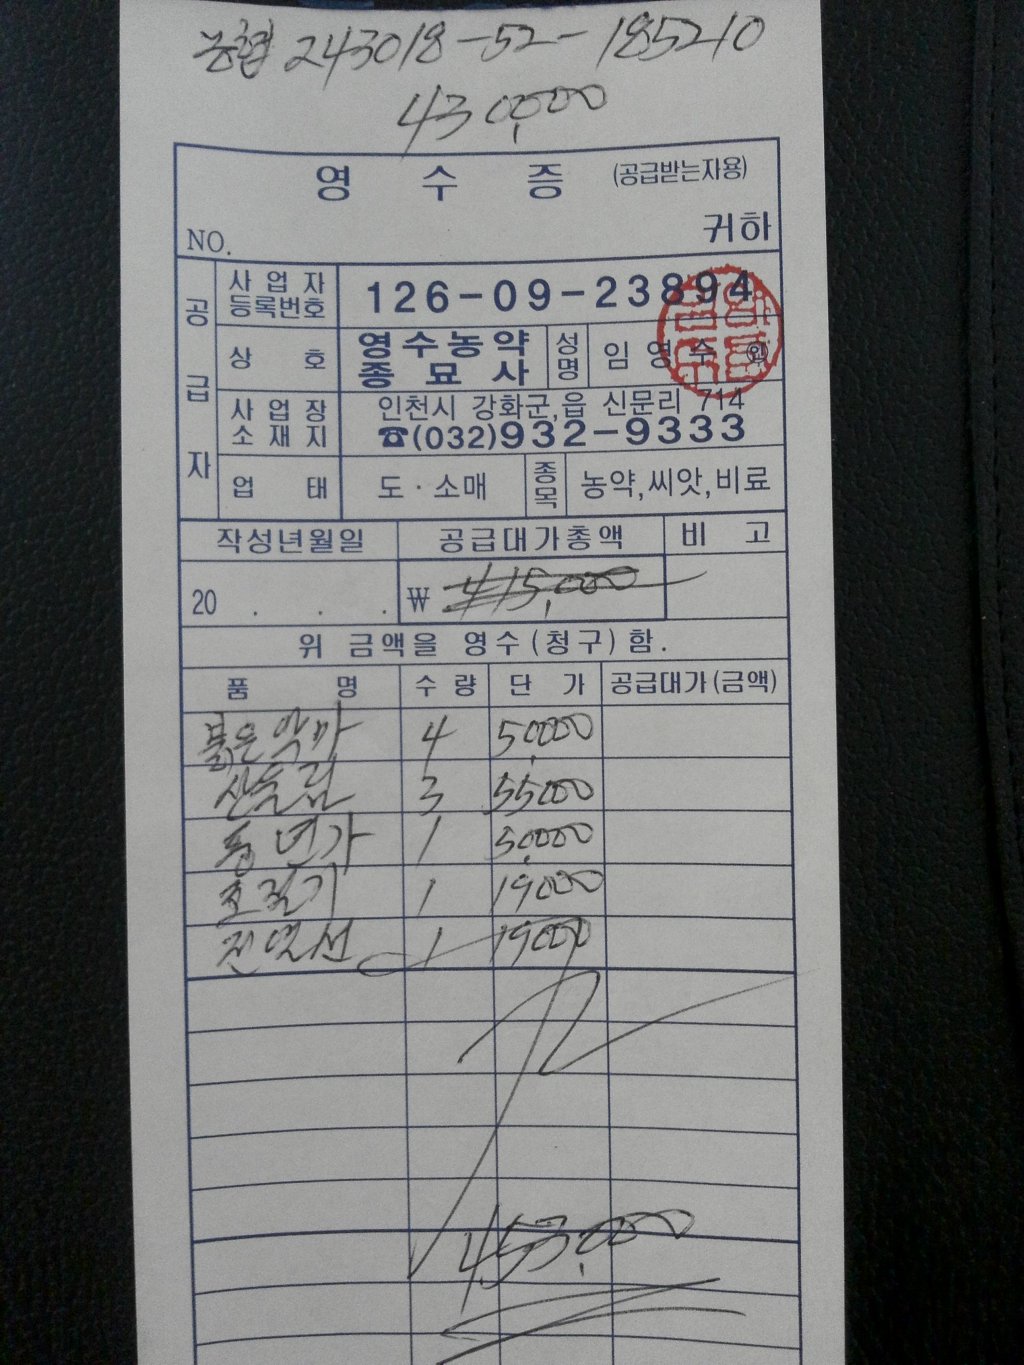 농협 243018-52-185210
430,000
영 수 증 (공급받는자용)
NO. 귀하
공급자
사업자등록번호 126-09-23894
상호 영수농약종묘사 성명 임영수 ㊞
사업장소재지 인천시 강화군,읍 신문리 714
☎(032)932-9333
업태 도·소매 종목 농약,씨앗,비료
작성년월일 공급대가총액 비고
20 . . . ₩ 415,000
위 금액을 영수(청구)함.
품명 수량 단가 공급대가(금액)
붉은 4 50,000
산들림 3 55000
1 50,000
1 19000
전열선 1 19000
453,000